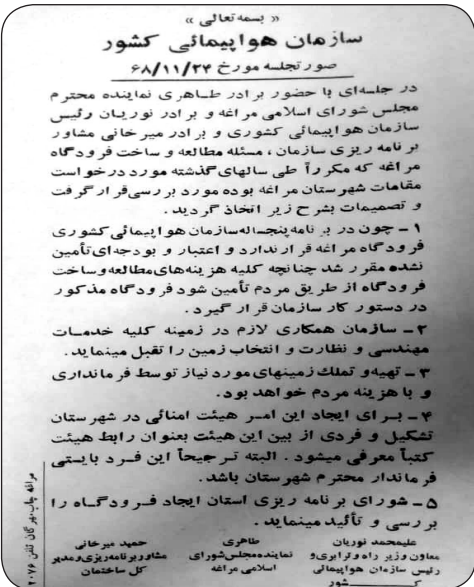 « بسمه تعالی »
سازمان هواپیمائی کشور
صورتجلسه مورخ ۶۸/۱۱/۲۴
در جلسه‌ای با حضور برادر طاهری نماینده محترم
مجلس شورای اسلامی مراغه و برادر نوریان رئیس
سازمان هواپیمائی کشوری و برادر میرخانی مشاور
برنامه ریزی سازمان ، مسئله مطالعه و ساخت فرودگاه
مراغه که مکرراً طی سالهای گذشته مورد درخواست
مقامات شهرستان مراغه بوده مورد بررسی قرار گرفت
و تصمیمات بشرح زیر اتخاذ گردید .
۱ – چون در برنامه پنجساله سازمان هواپیمائی کشوری
فرودگاه مراغه قرار ندارد و اعتبار و بودجه‌ای تأمین
نشده مقرر شد چنانچه کلیه هزینه‌های مطالعه و ساخت
فرودگاه از طریق مردم تأمین شود فرودگاه مذکور
در دستور کار سازمان قرار گیرد .
۲ – سازمان همکاری لازم در زمینه کلیه خدمات
مهندسی و نظارت و انتخاب زمین را تقبل مینماید.
۳ – تهیه و تملک زمینهای مورد نیاز توسط فرمانداری
و با هزینه مردم خواهد بود.
۴ – برای ایجاد این امر هیئت امنائی در شهرستان
تشکیل و فردی از بین این هیئت بعنوان رابط هیئت
کتباً معرفی میشود . البته ترجیحاً این فرد بایستی
فرماندار محترم شهرستان باشد.
۵ – شورای برنامه ریزی استان ایجاد فرودگاه را
بررسی و تأئید مینماید .
علیمحمد نوریان
معاون وزیر راه و ترابری و
رئیس سازمان هواپیمائی
کشور
طاهری
نماینده مجلس شورای
اسلامی مراغه
حمید میرخانی
مشاور برنامه ریزی و مدیر
کل ساختمان
مراغه چاپ مهرگان تلفن ۲۰۷۶